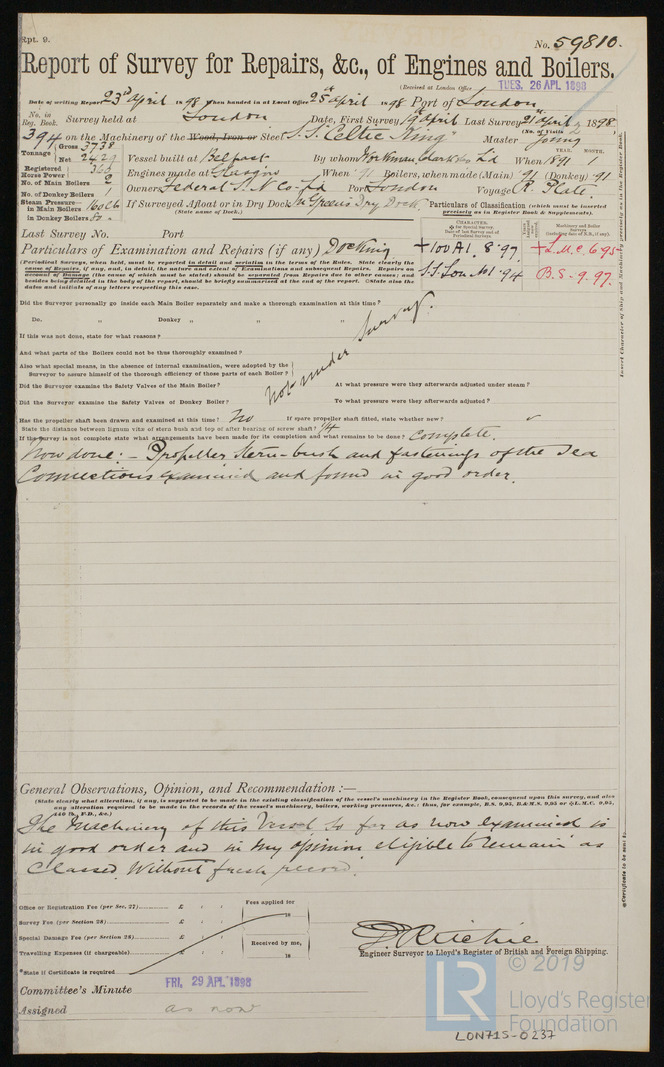 Rpt. 9.
No. 59810.
Report of Survey for Repairs, &c., of Engines and Boilers.
(Received at London Office TUES. 26 APL 1898
Date of writing Report 23rd April 1898 When handed in at Local Office 25th April 1898 Port of London
No. in Reg. Book. Survey held at London Date, First Survey 19th April Last Survey 21st April 1898
(No. of Visits 2)
394 on the Machinery of the Wood, Iron or Steel S.S. "Celtic King" Master Young
Tonnage Gross 3738
Net 2429
Vessel built at Belfast By whom Workman, Clark & Co Ld When 1891 1
YEAR. MONTH.
Registered Horse Power
Engines made at Glasgow When '91 Boilers, when made (Main) 91 (Donkey) 91
No. of Main Boilers 2
No. of Donkey Boilers 1
Owners Federal S. N. Co. Ld Port London Voyage R. Plate.
Steam Pressure in Main Boilers 160 lb
in Donkey Boilers
If Surveyed Afloat or in Dry Dock In Green's Dry Dock
(State name of Dock.)
Particulars of Classification (which must be inserted precisely as in Register Book & Supplements).
Last Survey No. Port
CHARACTER.
Machinery and Boiler Surveys
Particulars of Examination and Repairs (if any) Docking
+100A1. 8.97
+L.M.C. 6.95
S.S. Lon No1-94
B.S. 9.97.
(Periodical Surveys, when held, must be reported in detail and seriatim in the terms of the Rules. State clearly the
cause of Repairs, if any, and, in detail, the nature and extent of Examinations and subsequent Repairs. Repairs on
account of Damage (the cause of which must be stated) should be separated from Repairs due to other causes; and
besides being detailed in the body of the report, should be briefly summarised at the end of the report. State also the
dates and initials of any letters respecting this case.
Did the Surveyor personally go inside each Main Boiler separately and make a thorough examination at this time?
Do. " Donkey " " "
If this was not done, state for what reasons?
And what parts of the Boilers could not be thus thoroughly examined?
Also what special means, in the absence of internal examination, were adopted by the
Surveyor to assure himself of the thorough efficiency of those parts of each Boiler?
Not under Survey.
Did the Surveyor examine the Safety Valves of the Main Boiler? At what pressure were they afterwards adjusted under steam?
Did the Surveyor examine the Safety Valves of Donkey Boiler? To what pressure were they afterwards adjusted?
Has the propeller shaft been drawn and examined at this time? No If spare propeller shaft fitted, state whether new?
State the distance between lignum vitæ of stern bush and top of after bearing of screw shaft? 1/4
If the Survey is not complete state what arrangements have been made for its completion and what remains to be done? Complete.
Now done:- Propeller stern-bush and fastenings of the Sea
Connections examined and found in good order.
General Observations, Opinion, and Recommendation:—
(State clearly what alteration, if any, is suggested to be made in the existing classification of the vessel's machinery in the Register Book, consequent upon this survey, and also
any alteration required to be made in the records of the vessel's machinery, boilers, working pressures, &c.: thus, for example, B.S. 9,95, B.&M.S. 9,95 or L.M.C. 9,95,
140 lb., F.D., &c.)
The Machinery of this Vessel so far as now examined is
in good order and in my opinion eligible to remain as
Classed. Without fresh record.
Office or Registration Fee (per Sec. 27) £
Fees applied for
18
Survey Fee (per Section 28) £
Special Damage Fee (per Section 28) £
Received by me,
18
Travelling Expenses (if chargeable) £
P. Ritchie.
Engineer Surveyor to Lloyd's Register of British and Foreign Shipping.
*State if Certificate is required
Committee's Minute FRI. 29 APL 1898
Assigned as now
Insert Character of Ship and Machinery precisely as in the Register Book.
Certificate to be sent to
LR
© 2019
Lloyd's Register
Foundation
LON715-0237